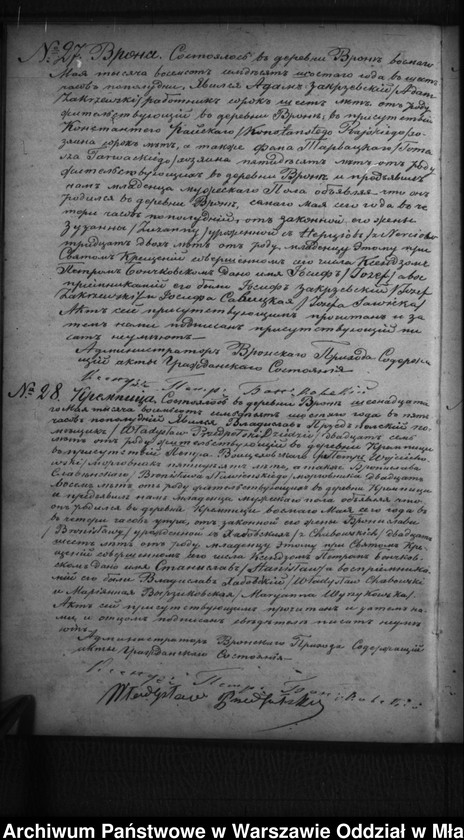 № 27. Врона. Состоялось въ деревни Вронѣ восмаго
Мая тысяча восемсотъ семдесятъ шостаго года въ шесть
часовъ пополудни. Явился Адамъ Закржевскій /Adam
Zakrzewski/ работникъ сорокъ шесть лѣтъ отъ роду
жительствующій въ деревни Вронѣ, въ присутствіи
Константого Райскаго /Konstantego Rajskiego/ хо-
зяина сорокъ лѣтъ, а также
хозяина пятидесятъ лѣтъ отъ роду
жительствующихъ въ деревни Вронѣ и предъявилъ
намъ младенца мужескаго Пола объявляя что онъ
родился въ деревни Вронѣ, сего года въ че-
тыри часъ пополудній, отъ законной его жены
Зузанны /Zuzanny/ урожденной съ
тридцать двохъ лѣтъ отъ роду. младенцу Этому при
Святомъ Крещеніи совершенномъ сего числа Ксендзомъ
Петромъ Бонковскимъ дано имя Іосифъ /Józef/ а вос-
пріемниками его были Іосифъ Закржевскій /Józef
Zakrzewski/ и Іосифа /Józefa
Актъ сей присутствующимъ прочитанъ и за-
темъ нами подписанъ присутствующій пи-
сать неумѣютъ.
Администраторъ Вронскаго Прихода Содержа-
щій акты Гражданскаго Состоянія
Ксендзъ Петръ Бонковскій
№ 28. Кремпица. Состоялось въ деревни Вронѣ
го Мая тысяча восемсотъ семдесятъ шостаго года въ пять
часовъ пополудній Явился Владиславъ по-
мещикъ /Władysław двадцать семь
лѣтъ отъ роду жительствующій въ деревни Кремпице
въ присутствіи Петра Войцѣховскаго /Piotra Wojciecho-
wski/ пятидесятъ лѣтъ, а также Бронислава
/Bronisława двадцать
восемъ лѣтъ отъ роду жительствующихъ въ деревни Кремпица
и предъявилъ намъ младенца мужескаго пола объявляя что
онъ родился въ деревни Кремпици восмаго Мая сего года въ
четери часъ утра, отъ законной его жены Брониславы
/Bronisławy/ урожденной съ Хабовскихъ /z Chabowskich/ двадцать
шесть лѣтъ отъ роду. младенцу Этому при Святомъ Кре-
щеніи совершенномъ сего числа Ксендзомъ Петромъ Бонков-
скимъ дано имя Станиславъ /Stanisław/ а воспріемника-
ми его были Владиславъ Хабовскій /Władysław Chabowski
и Маріянна /Maryanna
Актъ сій присутствующимъ прочитанъ и затемъ на-
ми, и отцомъ подписанъ свидѣтели писать неумѣ-
ютъ.
Администраторъ Вронскаго Прихода Содержащій
акты Гражданскаго Состоянія
Ксендзъ Петръ Бонковскій
Władysław
Archiwum Państwowe w Warszawie Oddział w Mła